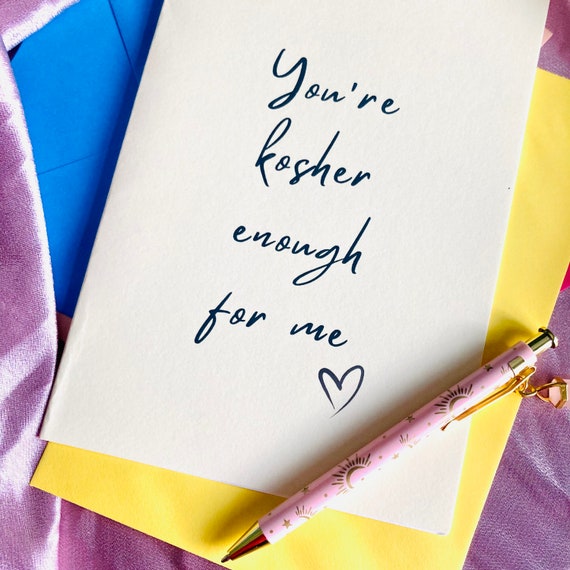 You're
kosher
enough
for me